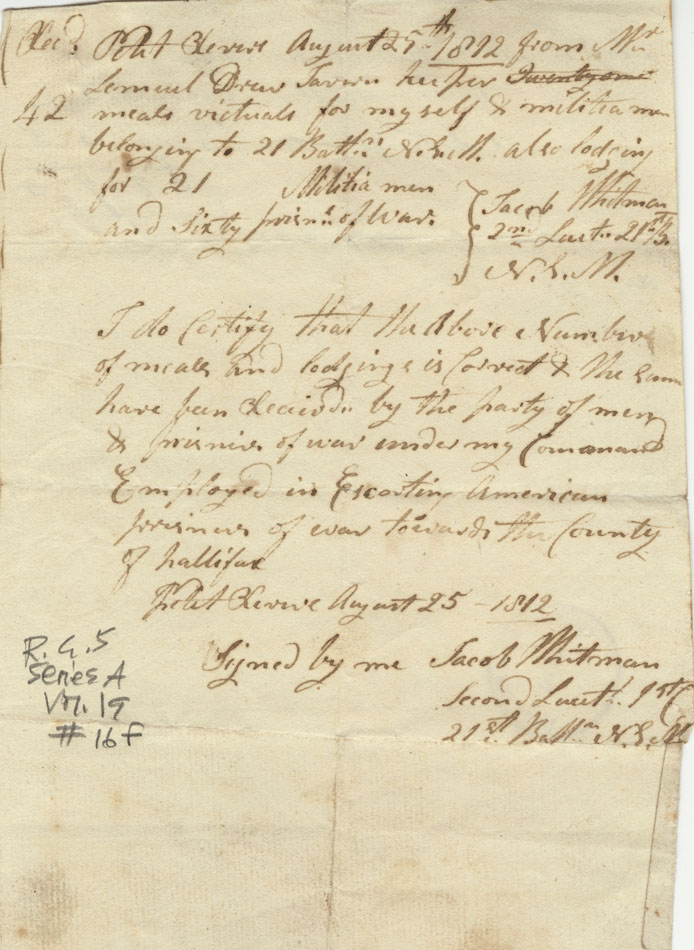 Recd. Petit Rivere August 25th 1812 from Mr
Lemuel Drew Tavern keeper Twenty one
42 meals victuals for myself & militia men
belonging to 21 Battn. N.S.M. also lodging
for 21 Militia men
and Sixty prisnrs. of War.
Jacob Whitman
2nd Luet. 21st B.
N.S.M.
I do Certify that the Above Number
of meals and lodgings is Correct & the Same
have been Received by the party of men
& prisniers of war under my Command
Employed in Escorting American
prisners of war towards the County
of hallifax
Petit Rivere August 25 - 1812
Signed by me Jacob Whitman
Second Luett.
21st. Battn N.S.M.
R.G.5
Series A
Vol. 19
# 16 f